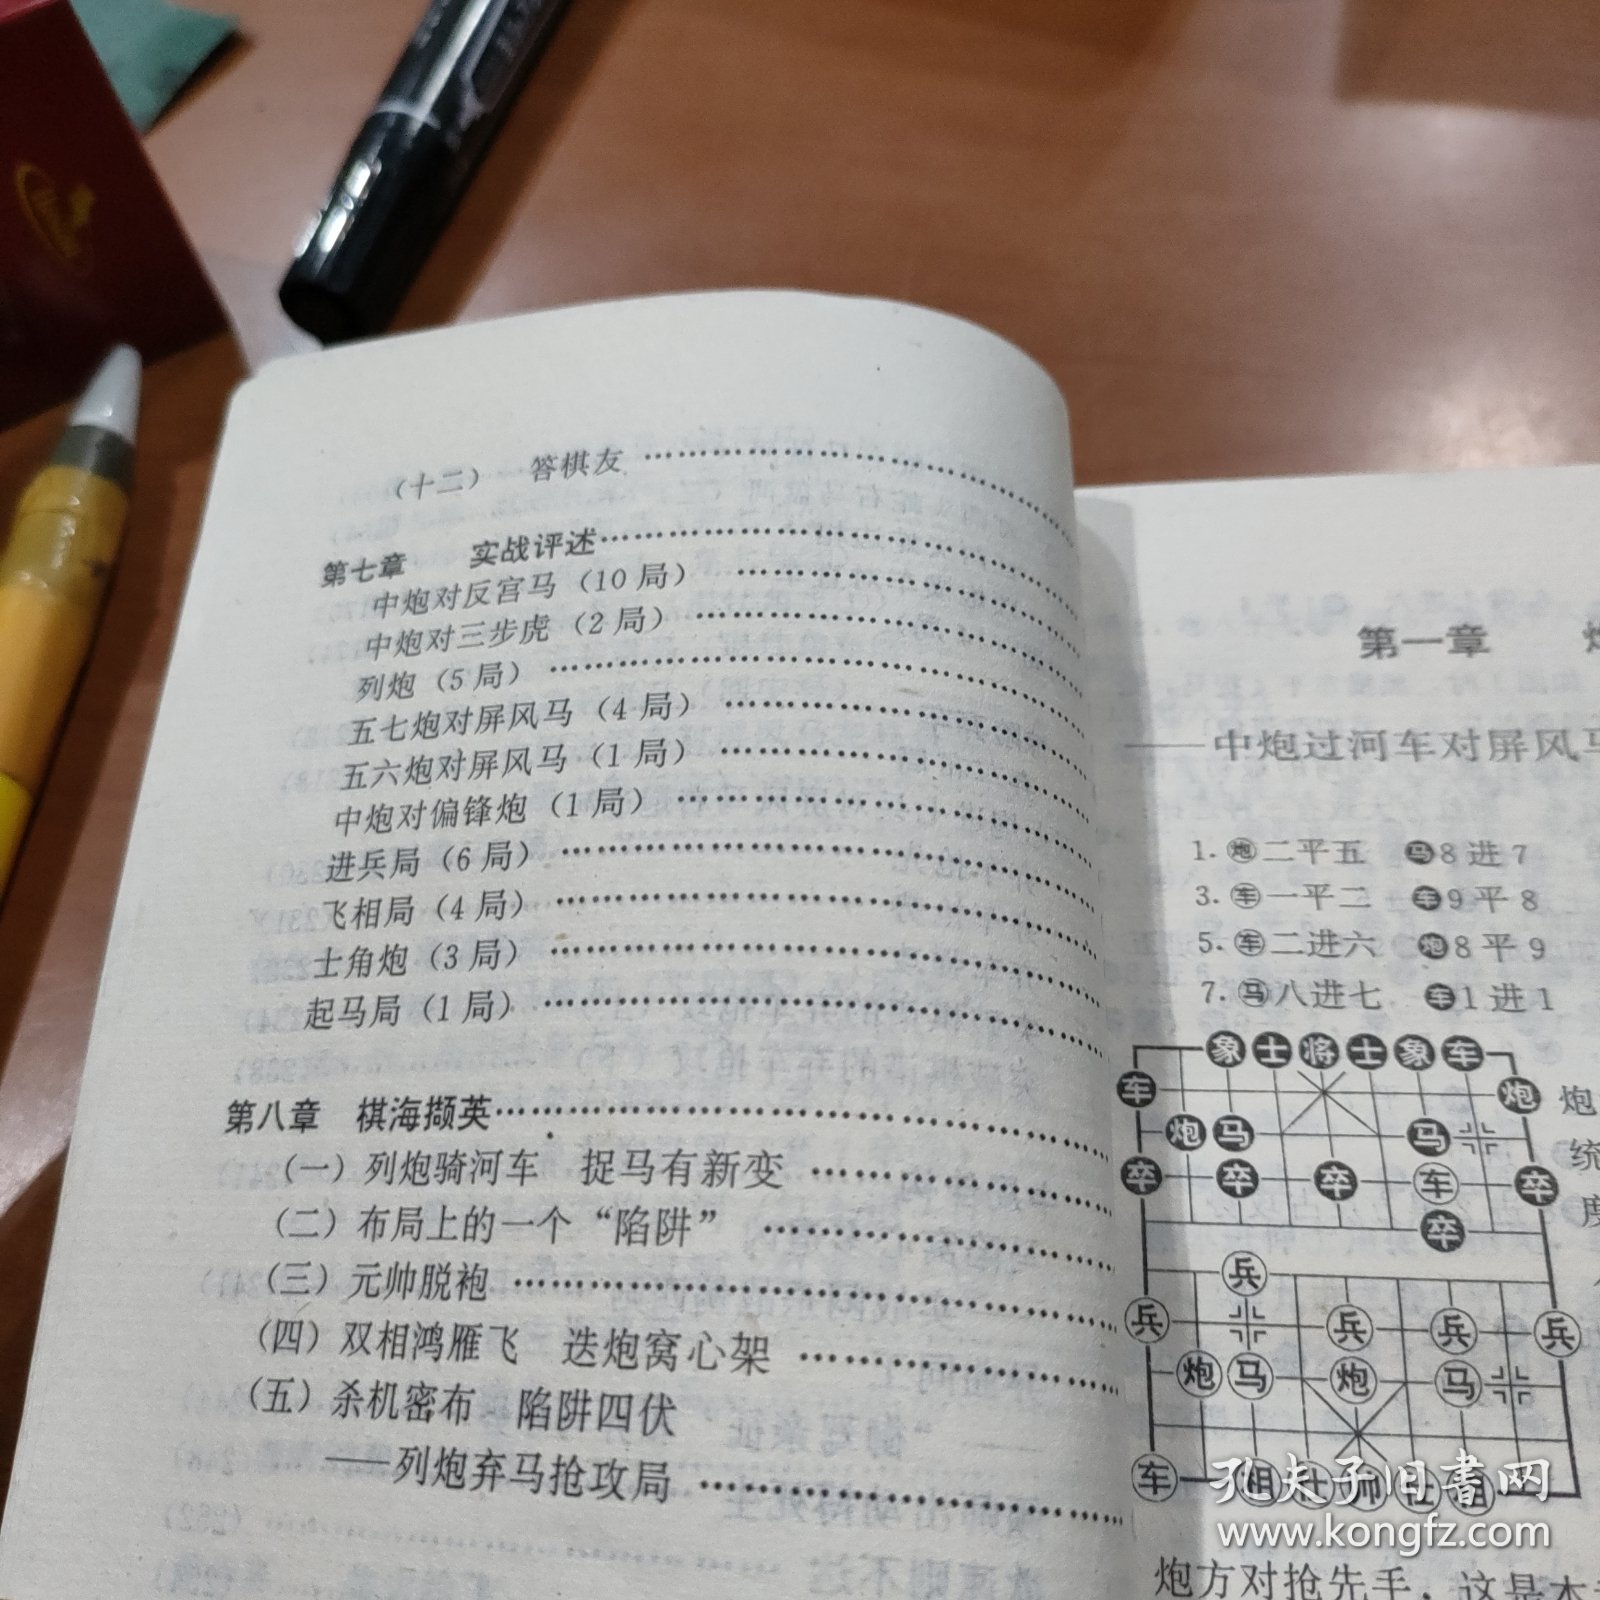 （十二） 答棋友 ………………
第七章 实战评述………………
中炮对反宫马（10 局） ………………
中炮对三步虎（2 局） ………………
列炮（5 局） ………………
五七炮对屏风马（4 局） ………………
五六炮对屏风马（1 局） ………………
中炮对偏锋炮（1 局） ………………
进兵局（6 局） ………………
飞相局（4 局） ………………
士角炮（3 局） ………………
起马局（1 局） ………………
第八章 棋海撷英………………
（一）列炮骑河车 捉马有新变 ………………
（二）布局上的一个“陷阱” ………………
（三）元帅脱袍 ………………
（四）双相鸿雁飞 迭炮窝心架 ………………
（五）杀机密布 陷阱四伏
——列炮弃马抢攻局 ………………
第一章
——中炮过河车对屏风马
1. 炮二平五 马8进7
3. 车一平二 车9平8
5. 车二进六 炮8平9
7. 马八进七 车1进1
象士将士象车
车 炮
炮马 马
卒 卒 卒 车 卒
卒
兵
兵 兵 兵 兵
炮马 炮 马
车 相仕帅仕相
炮
统
度
炮方对抢先手，这是本
孔夫子旧书网
www.kongfz.com